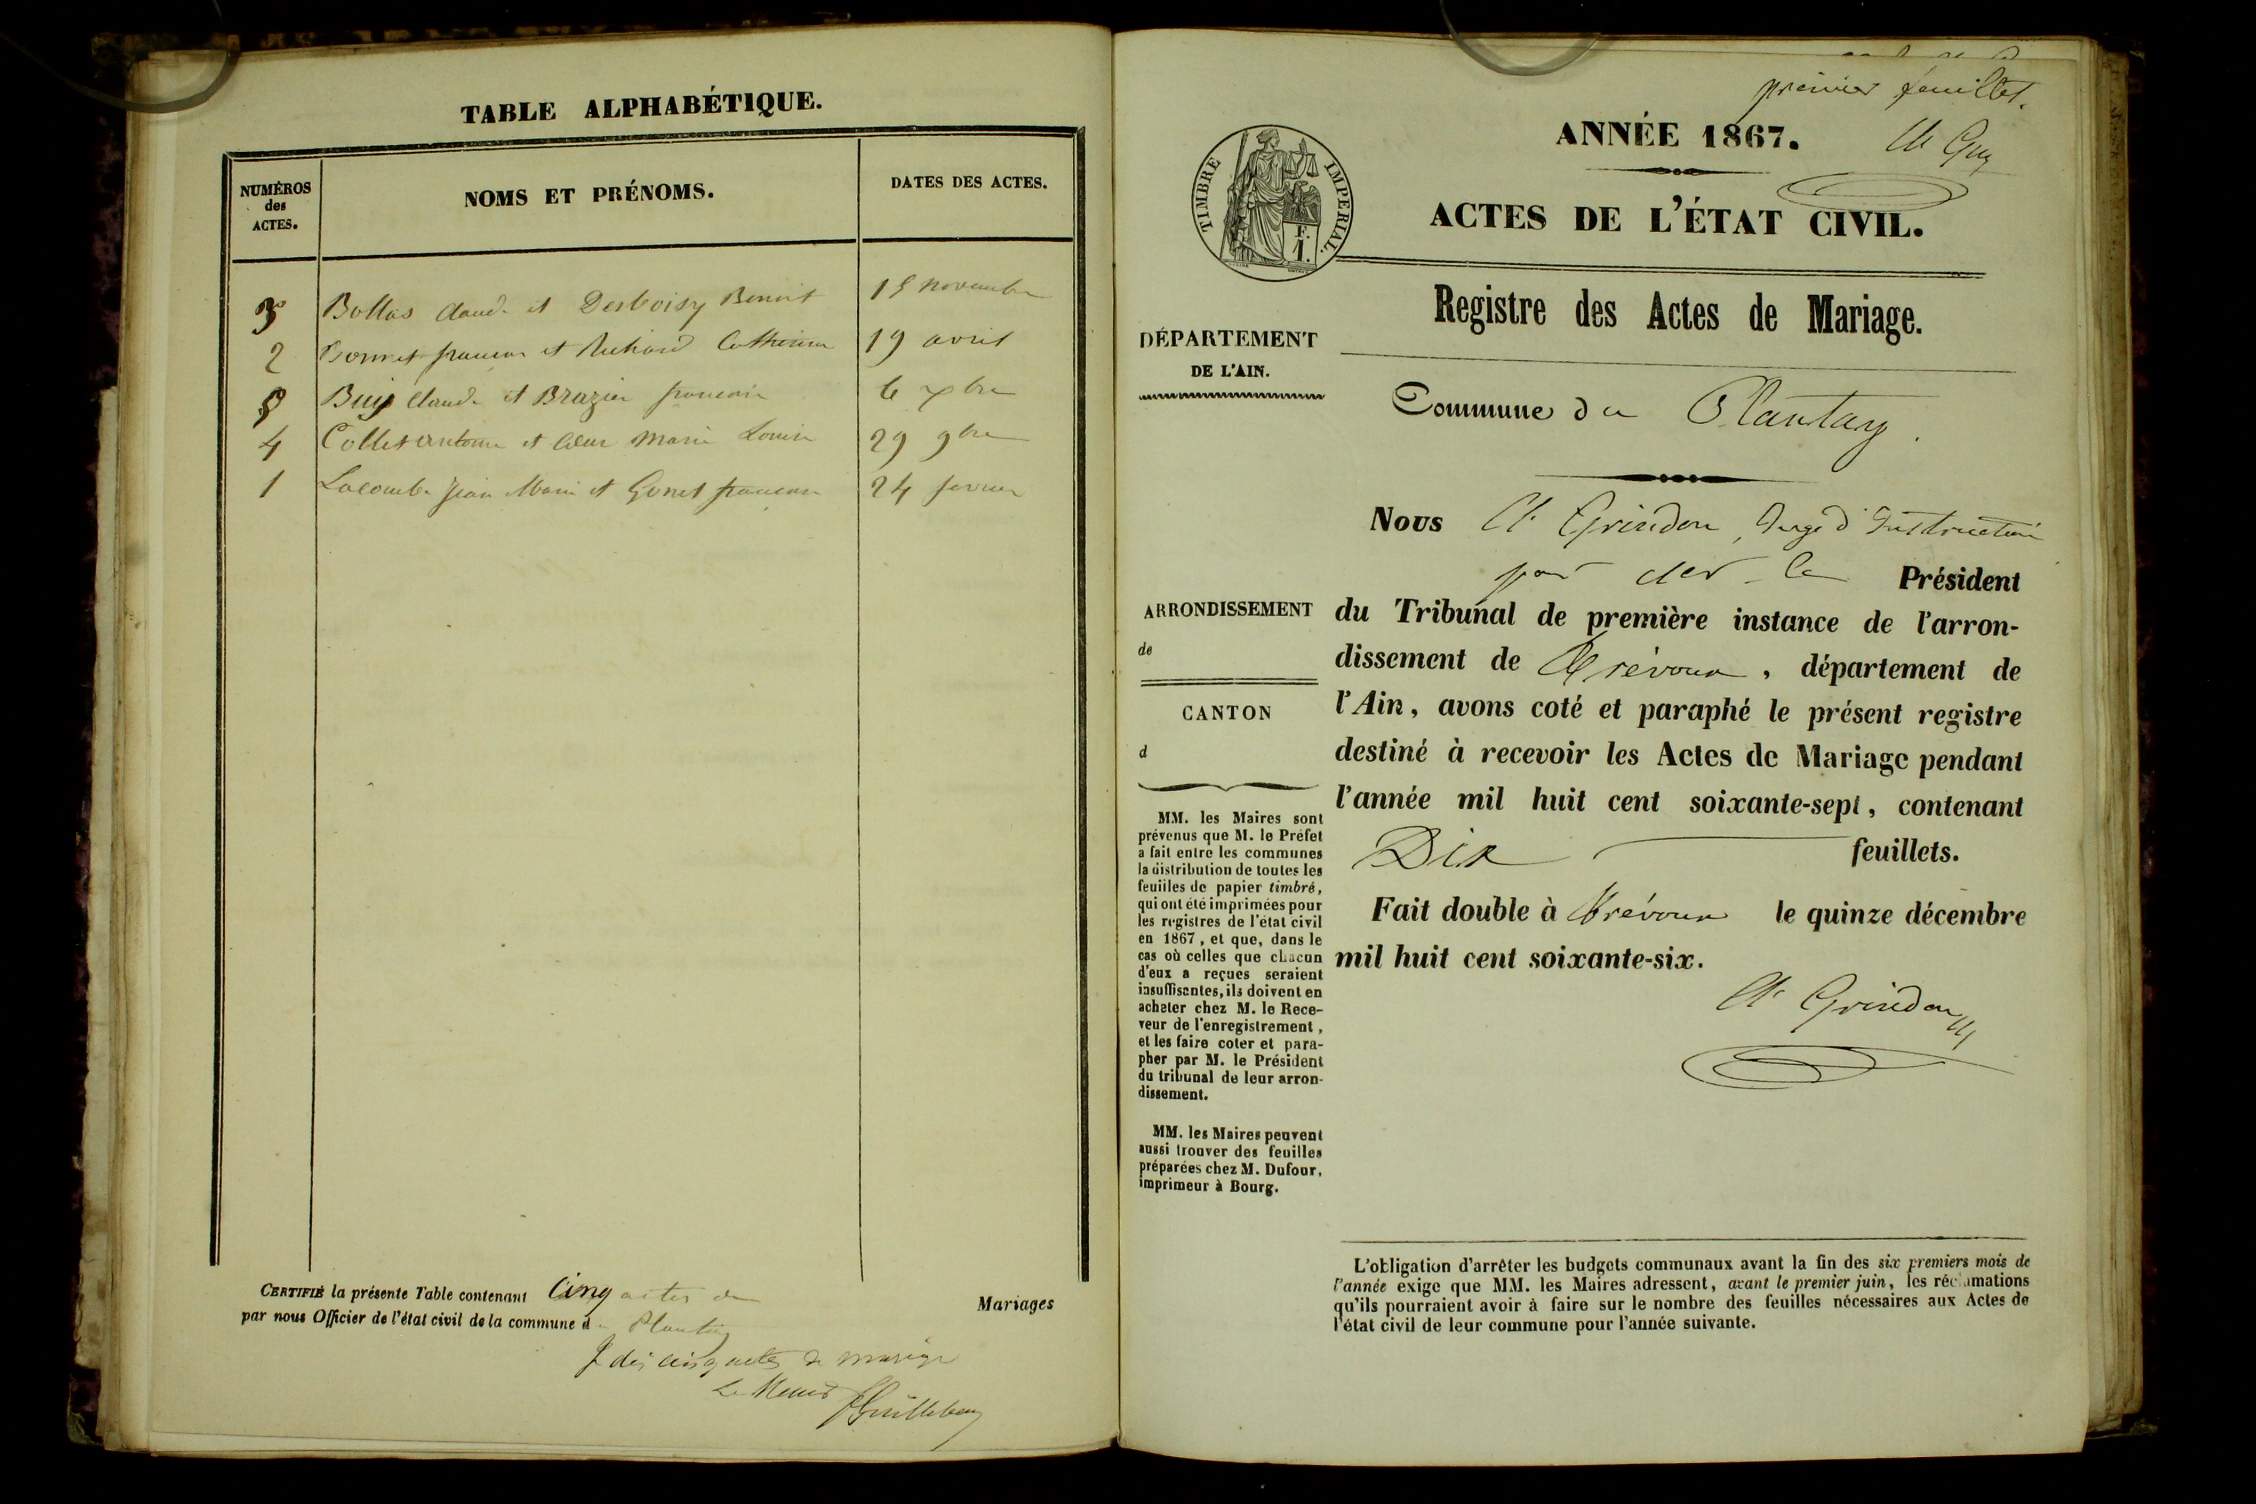 TABLE ALPHABÉTIQUE.
NUMÉROS des ACTES.
NOMS ET PRÉNOMS.
DATES DES ACTES.
3 Bollas Claude et Desboisy Benoit 15 novembre
2 Bonnet françois et Richard Catherine 19 avril
5 Buis Claude et Brazier françoise 6 xbre
4 Collet antoine et Cœur Marie Louise 29 9bre
1 Lacombe Jean Marie et Gonet françoise 24 fevrier
CERTIFIÉ la présente Table contenant Cinq actes de Mariages
par nous Officier de l'état civil de la commune du Plantay
cinq actes de mariage
Le Maire
premier feuillet.
ANNÉE 1867.
ACTES DE L'ÉTAT CIVIL.
TIMBRE IMPERIAL.
F.
1.
Registre des Actes de Mariage.
DÉPARTEMENT
DE L'AIN.
Commune du Plantay.
Nous Ch Grindon, Juge d'Instruction
pour le Président
du Tribunal de première instance de l'arron-
dissement de Trévoux, département de
l'Ain, avons coté et paraphé le présent registre
destiné à recevoir les Actes de Mariage pendant
l'année mil huit cent soixante-sept, contenant
Dix feuillets.
Fait double à Trévoux le quinze décembre
mil huit cent soixante-six.
Ch Grindon
ARRONDISSEMENT
de
CANTON
d
MM. les Maires sont
prévenus que M. le Préfet
a fait entre les communes
la distribution de toutes les
feuilles de papier timbré,
qui ont été imprimées pour
les registres de l'état civil
en 1867, et que, dans le
cas où celles que chacun
d'eux a reçues seraient
insuffisantes, ils doivent en
acheter chez M. le Rece-
veur de l'enregistrement,
et les faire coter et para-
pher par M. le Président
du tribunal de leur arron-
dissement.
MM. les Maires peuvent
aussi trouver des feuilles
préparées chez M. Dufour,
imprimeur à Bourg.
L'obligation d'arrêter les budgets communaux avant la fin des six premiers mois de
l'année exige que MM. les Maires adressent, avant le premier juin, les réclamations
qu'ils pourraient avoir à faire sur le nombre des feuilles nécessaires aux Actes de
l'état civil de leur commune pour l'année suivante.